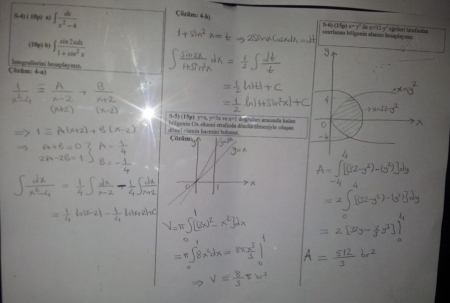 S-4) (10p) a) ∫ dx / x²-4
(10p) b) ∫ sin2xdx / 1+sin²x
İntegrallerini hesaplayınız.
Çözüm: 4-a)
1/x²-4 = A/x-2 + B/x+2
(x+2) (x-2)
⇒ 1 = A(x+2)+B(x-2)
⇒ A+B=0 } A=1/4
2A-2B=1 } B=-1/4
∫ dx/x²-4 = 1/4 ∫ dx/x-2 - 1/4 ∫ dx/x+2
= 1/4 ln|x-2| - 1/4 ln|x+2|+C
Çözüm: 4-b)
1+sin²x=t ⇒ 2sinx cosx dx=dt
∫ sin2x/1+sin²x dx = ∫ dt/t
= ln|t|+C
= ln|1+sin²x|+C
S-5) (15p) y=x, y=3x ve x=1 doğruları arasında kalan
bölgenin Ox ekseni etrafında döndürülmesiyle oluşan
dönel cismin hacmini bulunuz.
Çözüm:
y=3x
y=x
x
0 1
V=π∫[(3x)²-x²]dx
=π∫8x²dx = 8πx³/3 |
⇒ V = 8/3 π br³
S-6) (15p) x=y² ile x=32-y² eğrileri tarafından
sınırlanan bölgenin alanını hesaplayınız.
y
x=y²
4
x=32-y²
0
x
-4
A = ∫[(32-y²)-(y²)]dy
= 2∫[(32-y²)-(y²)]dy
= 2[32y-2/3 y³]
A = 512/3 br²